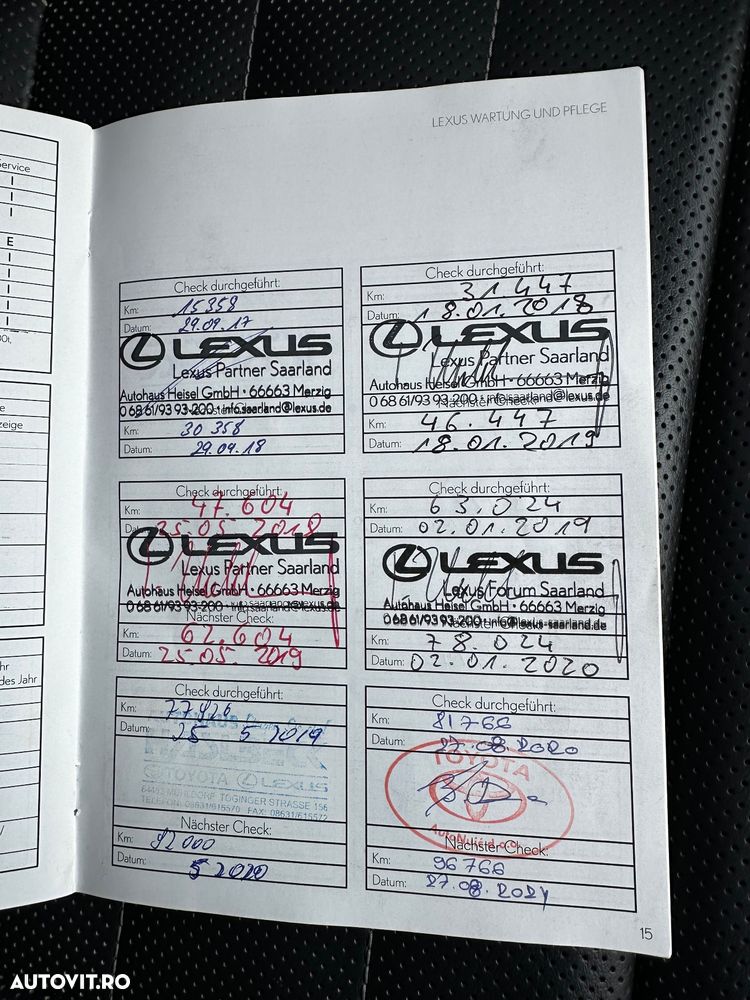 LEXUS WARTUNG UND PFLEGE
Service
E
zeige
hr
des Jahr
Check durchgeführt:
Km: 15358
Datum: 29.09.17
LEXUS
Lexus Partner Saarland
Autohaus Heisel GmbH • 66663 Merzig
0 68 61/93 93-200 • info.saarland@lexus.de
Km: 30 358
Datum: 29.09.18
Check durchgeführt:
Km: 31447
Datum: 18.01.2018
LEXUS
Lexus Partner Saarland
Autohaus Heisel GmbH • 66663 Merzig
Nächster Check:
0 68 61/93 93-200 • info.saarland@lexus.de
Km: 46.447
Datum: 18.01.2019
Check durchgeführt:
Km: 47.604
Datum: 25.05.2018
LEXUS
Lexus Partner Saarland
Autohaus Heisel GmbH • 66663 Merzig
0 68 61/93 93-200 • info.saarland@lexus.de
Nächster Check:
Km: 62.604
Datum: 25.05.2019
Check durchgeführt:
Km: 63.024
Datum: 02.01.2019
LEXUS
Lexus Forum Saarland
Autohaus Heisel GmbH • 66663 Merzig
Nächster Check:
0 68 61/93 93-200 • info@lexus-saarland.de
Km: 78.024
Datum: 02.01.2020
Check durchgeführt:
Km: 77426
Datum: 25 5 2019
TOYOTA LEXUS
84453 MÜHLDORF TÖGINGER STRASSE 156
TELEFON: 08631/615570 FAX: 08631/615572
Nächster Check:
Km: 92000
Datum: 5 2020
Check durchgeführt:
Km: 81766
Datum: 27.08.2020
TOYOTA
Nächster Check:
Km: 96766
Datum: 27.08.2021
15
AUTOVIT.RO